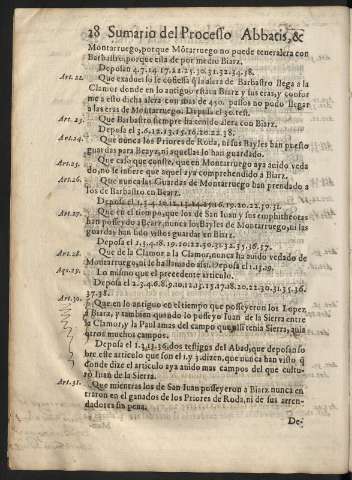 28 Sumario del Processo Abbatis, &
Montarruego, porque Mõtarruego no puede tener alera con
Barbastro, porque està de por medro Biarz.
Deposan 4.7.14.17.22.25.30.31.32.34.38.
Art. 22. Que exaduerso se cõfiessa q̃ la alera de Barbastro llega a la
Clamor donde en lo antiguo estaua Biarz y sus eras, y confor
me a esto dicha alera con mas de 450. passos no podo llegar
a las eras de Montarruego. Deposa el 30. test.
Art. 23. Que Barbastro siempre ha tenido alera con Biarz.
Deposa el 3.6.12.13.15.16.20.22.38.
Art. 24. Que nunca los Priores de Roda, ni sus Bayles han puesto
guardas para Beayz, ni aquellas lo han guardado.
Art. 25. Que caso que conste, que en Montarruego aya acido veda
do, no se infiere que aquel aya comprehendido a Biarz.
Art. 26. Que nunca las Guardas de Montarruego han prendado a
los de Barbastro en Bearz.
Deposa el 1.3.4.10.12.13.14.15.16.19.20.22.30.31.
Art. 27. Que en el tiempo, que los de San Iuan y sus emphitheotas
han posseydo a Bearz, nunca los Bayles de Montarruego, ni las
guardas han sido vistos guardar en Biarz.
Deposa el 1.3.4.18.19.20.22.30.31.32.35.36.37.
Art. 28. Que de la Clamor a la Clamor, nunca ha auido vedado de
Montearruego, ni le ha llamado assi. Deposa el 1.13.29.
Art. 29. Lo mismo que el precedente articulo.
Deposa el 2.3.4.6.8.9.10.12.13.15.17.18.20.22.30.31.35.36.
37.38.
Art. 30. Que en lo antiguo en el tiempo que posseyeron los Lopez
a Biarz, y tambien quando lo posseyo Iuan de la Sierra entre
la Clamor, y la Paul amas del campo que alli tenia Sierra, auia
otros muchos campos.
Deposa el 1.13.36. dos testigos del Abad, que deposan so
bre este articulo que son el 1. y 3. dizen, que nunca han visto q̃
donde dize el articulo aya auido mas campos del que cultu-
rò Iuan de la Sierra.
Art. 31. Que mientras los de San Iuan posseyeron a Biarz nunca en
traron en el ganados de los Priores de Roda, ni de sus arren-
dadores sin pena.
De-